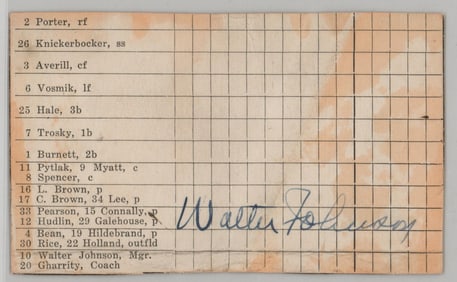 2 Porter, rf
26 Knickerbocker, ss
3 Averill, cf
6 Vosmik, lf
25 Hale, 3b
7 Trosky, 1b
1 Burnett, 2b
11 Pytlak, 9 Myatt, c
8 Spencer, c
16 L. Brown, p
17 C. Brown, 34 Lee, p
33 Pearson, 15 Connally, p
12 Hudlin, 29 Galehouse, p
4 Bean, 19 Hildebrand, p
30 Rice, 22 Holland, outfld
10 Walter Johnson, Mgr.
20 Gharrity, Coach
Walter Johnson